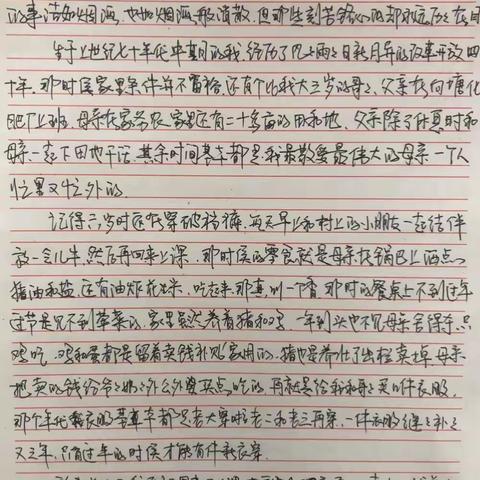 的事 诸如烟酒, 也如烟酒般消散, 但那些刻苦铭心的却永远历历在目
生于上世纪七十年代中期的我, 经历了几十年日新月异的改革开放四
十年, 那时侯家里条件并不富裕, 还有个比我大三岁的哥哥, 父亲在向塘化
肥厂上班, 母亲在家务农, 家里还有二十多亩的田和地, 父亲除了休息时和
母亲一起下田地干活, 其余时间基本都是我最敬爱最伟大的母亲一个人
忙里又忙外的.
记得六岁时还在穿破裆裤, 每天早上和村上的小朋友一起结伴
放一会儿牛, 然后再回来上课, 那时侯的零食就是母亲在锅巴上洒点
猪油和盐, 还有油炸花生米, 吃起来那真叫一个香, 那时的餐桌上不到过年
过节是见不到荤菜的, 家里虽然养着猪和鸡, 一年到头也不见母亲舍得杀只
鸡吃, 鸡和蛋都是留着卖钱补贴家用的, 猪也是养壮了出栏卖掉, 母亲
把卖的钱给爷爷奶奶外公外婆买点吃的, 再就是给我和哥哥买件衣服,
那个年代穿衣服基本都是老大穿啦老二和老三再穿, 一件衣服缝缝补补
又三年, 只有过年的时侯才能有件新衣穿.